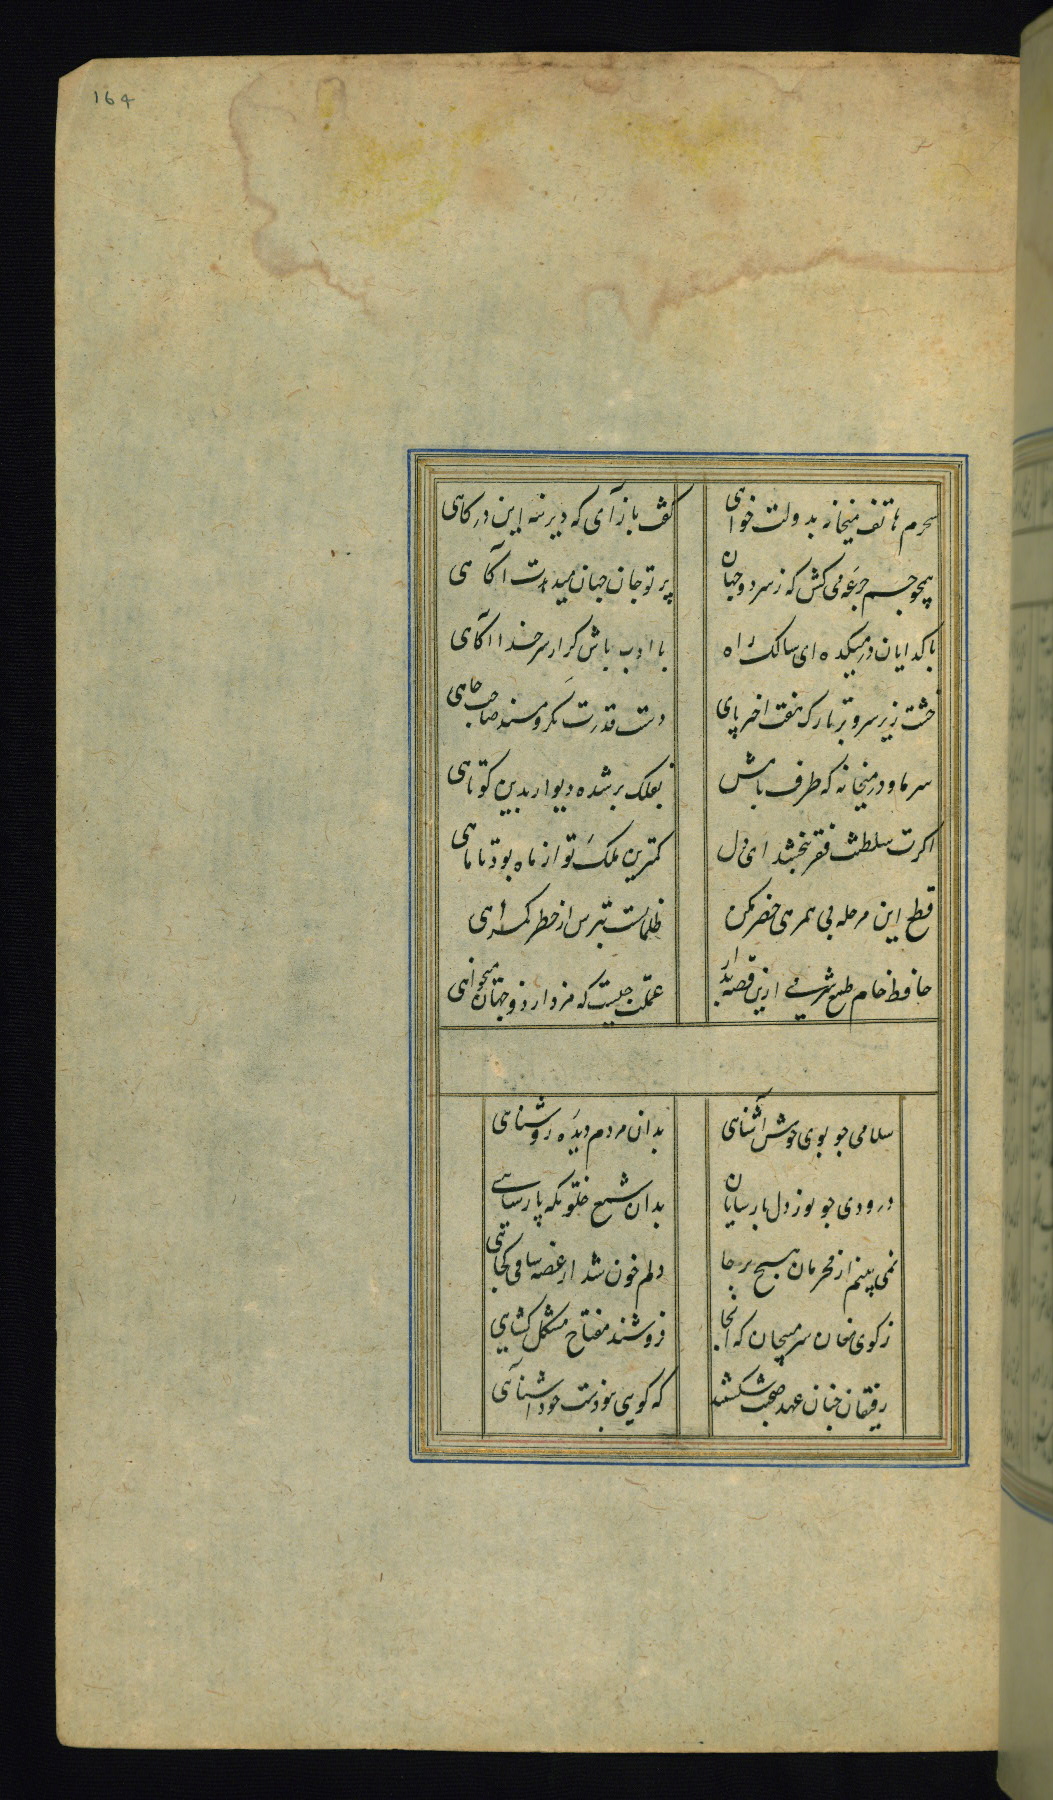 164
سحرم هاتف میخانه بدولت خواهی
گفت باز آی که دیرینه این درکاهی
همچو جم جرعه می کش که ز سر دو جهان
پرتو جان جهان میدهدت آکاهی
با کدایان در میکده ای سالک راه
با ادب باش کر از سر خدا آکاهی
خشت زیر سر و بر تارک هفت اختر پای
دست قدرت نکر و مسند صاحب جاهی
سر ما و در میخانه که طرف بامش
بفلک بر شده دیوار بدین کوتاهی
اکرت سلطنت فقر ببخشند ای دل
کمترین ملک تو از ماه بود تا ماهی
قطع این مرحله بی همرهی خضر مکن
ظلماتست بترس از خطر کمراهی
حافظ خام طمع شرمی ازین قصه بدار
عملت چیست که مزد از دو جهان میخواهی
سلامی چو بوی خوش آشنایی
بدان مردم دیده روشنایی
درودی چو نور دل پارسایان
بدان شمع خلوتکه پارسایی
نمی بینم از محرمان هیچ بر جا
دلم خون شد از غصه ساقی کجایی
ز کوی مغان سر مپیچان که آنجا
فروشند مفتاح مشکل کشایی
رفیقان چنان عهد صحبت شکستند
که کویی نبودست خود آشنایی